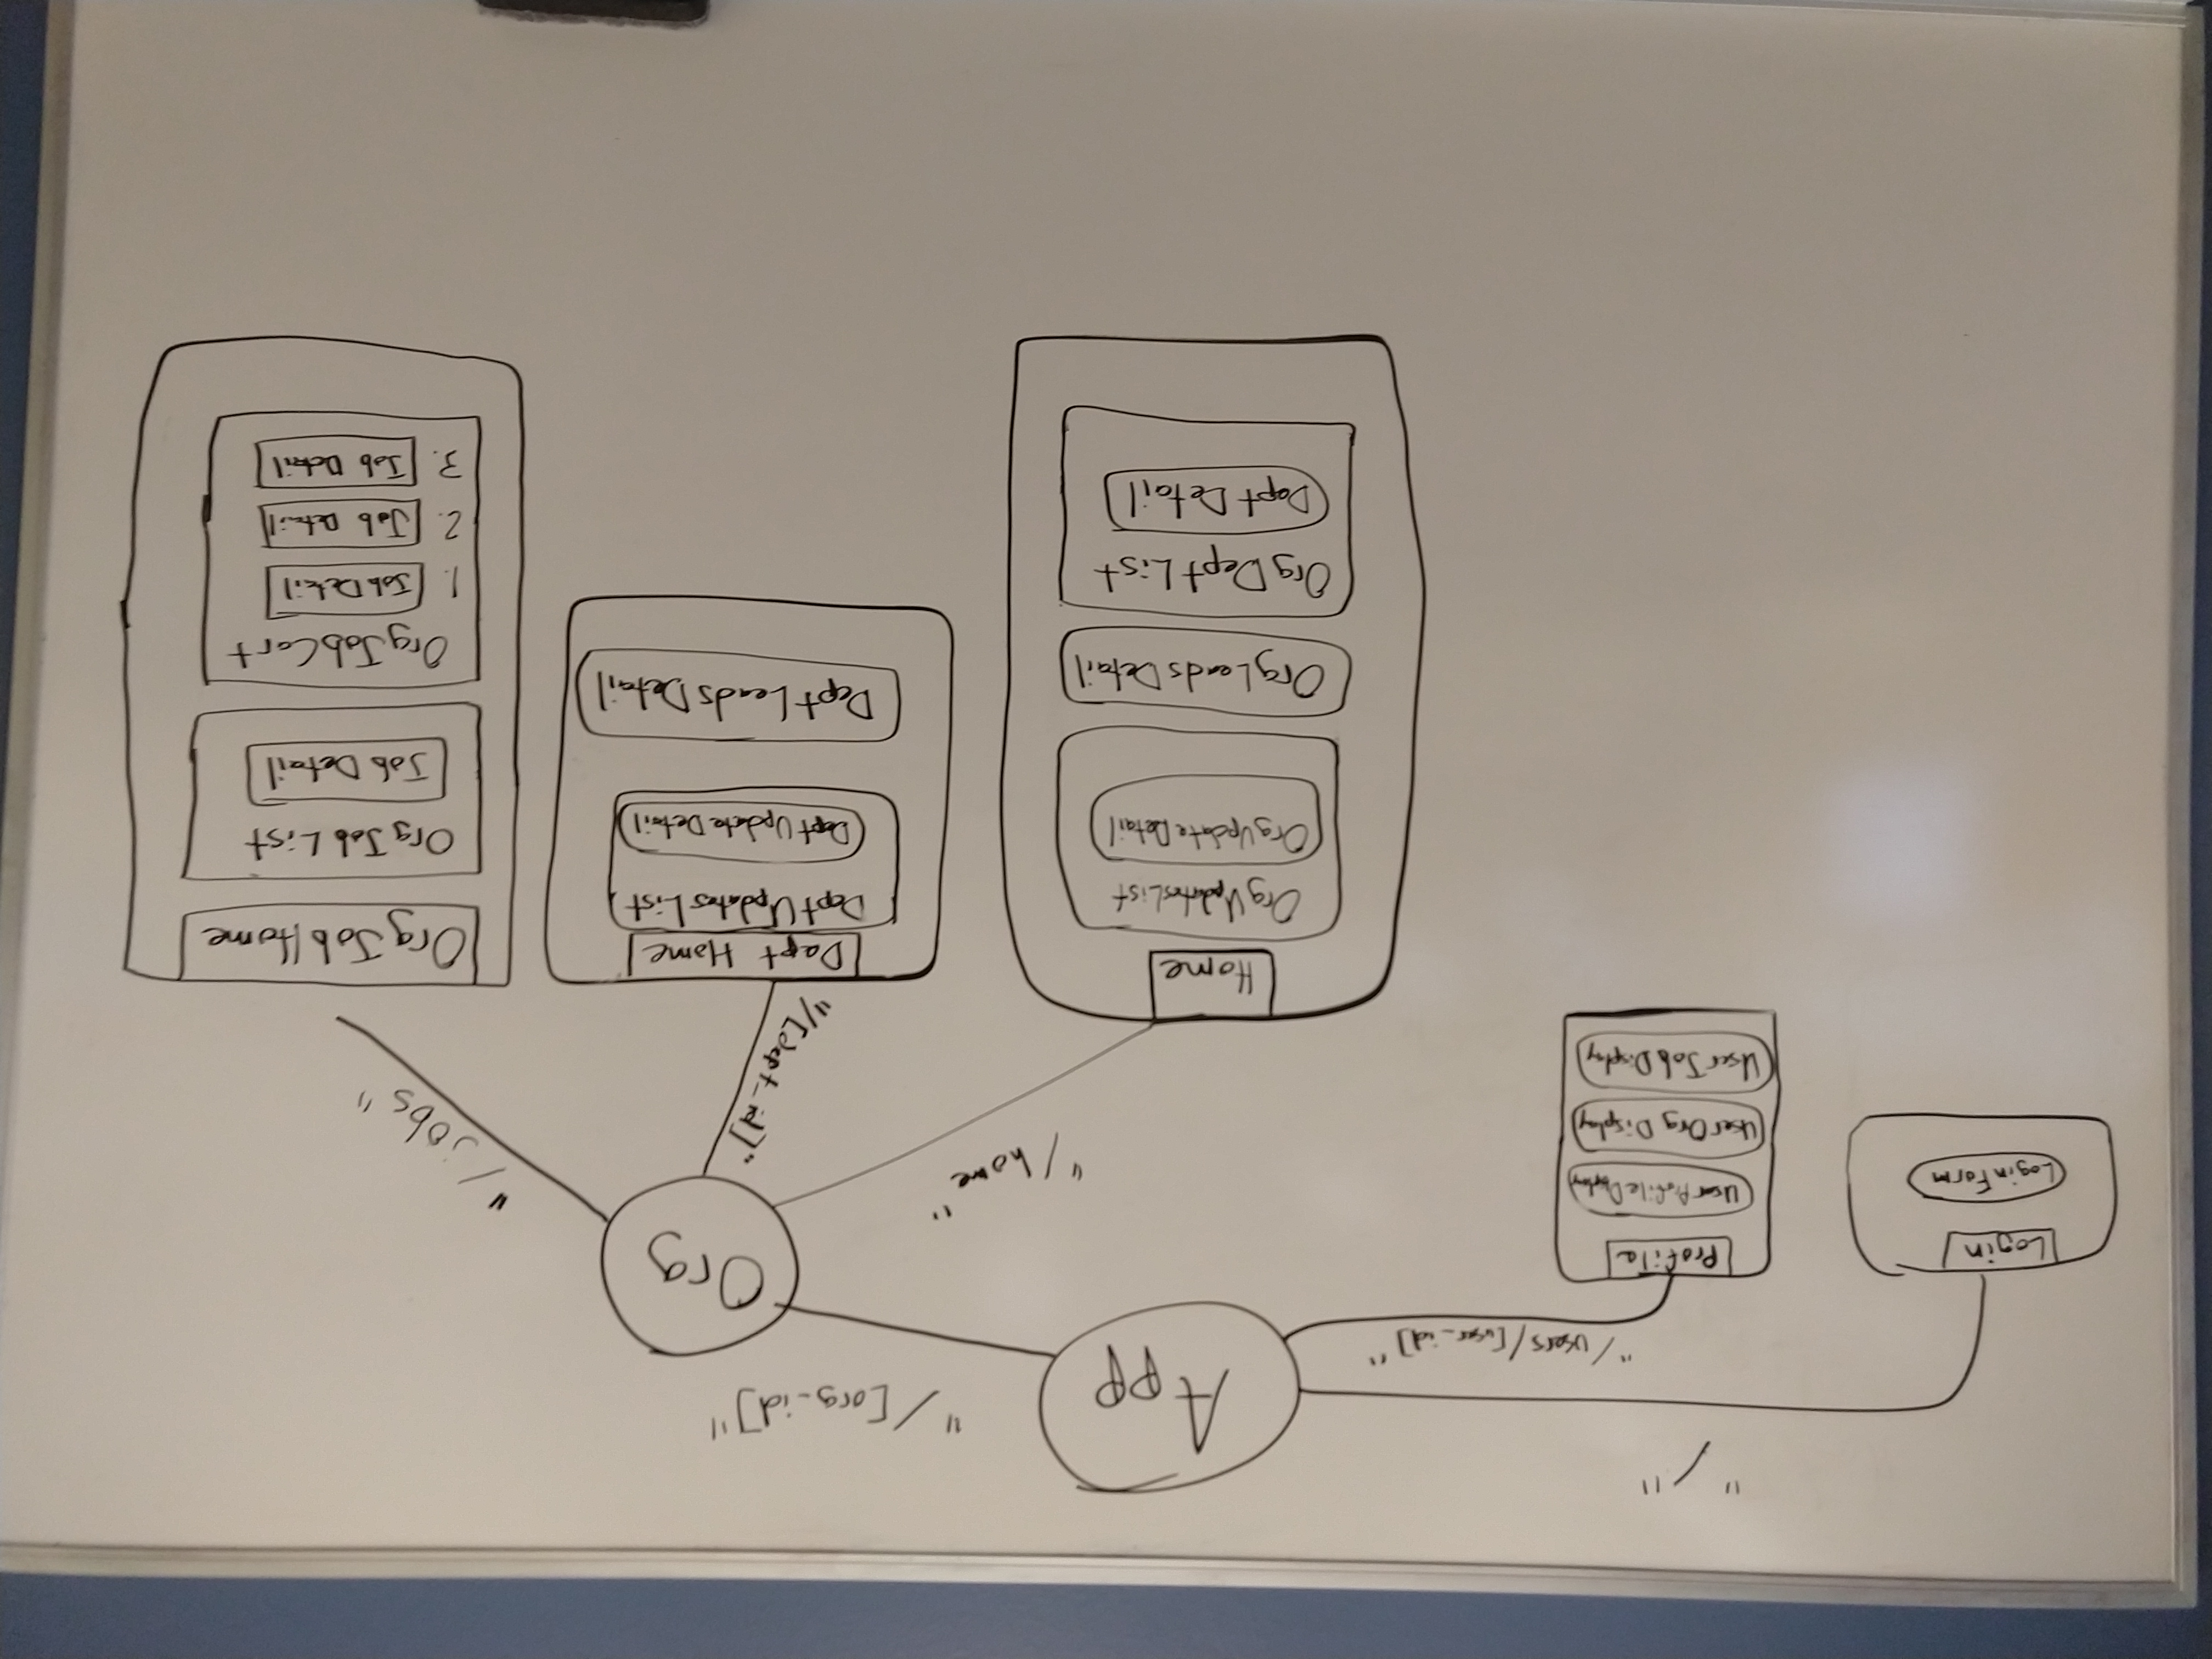 "/"
App
"/[org_id]"
"/users/[user_id]"
Org
Login
LoginForm
Profile
UserProfileDisplay
UserOrg Display
UserJobDisplay
"/home"
"/[dept_id]"
"/jobs"
Home
OrgUpdatesList
OrgUpdateDetail
OrgLeadsDetail
OrgDeptList
DeptDetail
Dept Home
DeptUpdatesList
DeptUpdateDetail
DeptLeadsDetail
OrgJobHome
OrgJobList
Job Detail
OrgJobCart
1. JobDetail
2. Job Detail
3. Job Detail